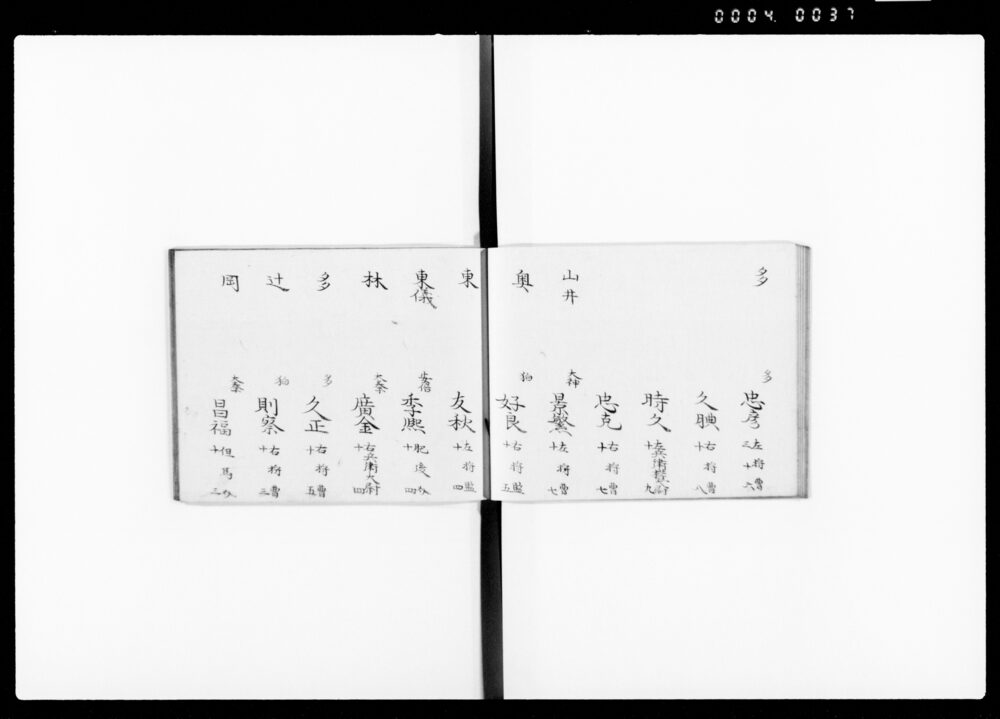 0004 0037
多 多 忠彦 左将曹 三十六
久腆 右将曹 十八
時久 左兵衛権少尉 十九
忠克 右将曹 十七
山井 大神 景繁 左将曹 十七
奥 狛 好良 右将監 十五
東 友秋 左将監 十四
東儀 安倍 季熈 肥後介 十四
林 太秦 廣金 右兵衛大尉 十四
多 多 久正 右将曹 十五
辻 狛 則察 右将曹 十三
岡 太秦 昌福 但馬介 十三